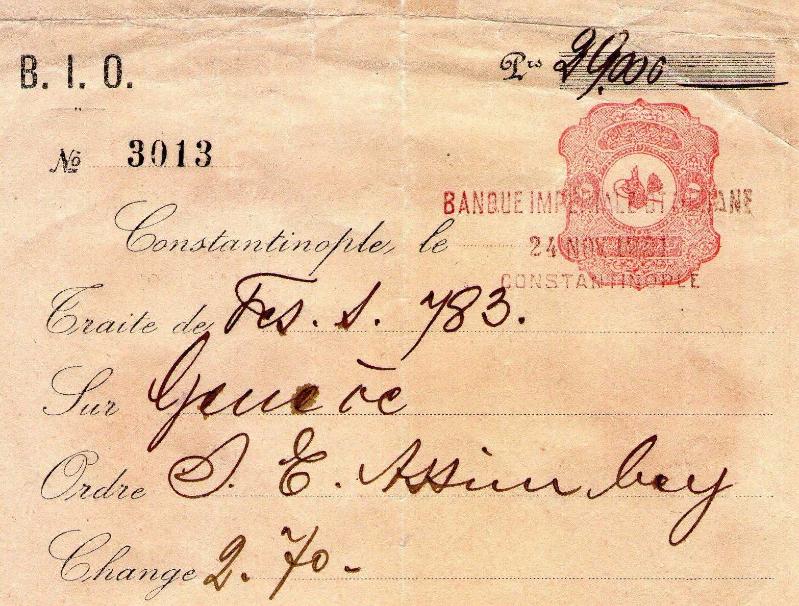 B. I. O.
Prs 29,000
No 3013
BANQUE IMPERIALE OTTOMANE
24 NOV 1921
CONSTANTINOPLE
Constantinople, le
Traite de Fcs. s. 783.
Sur Genève
Ordre S. E. Assim bey
Change 2.70-